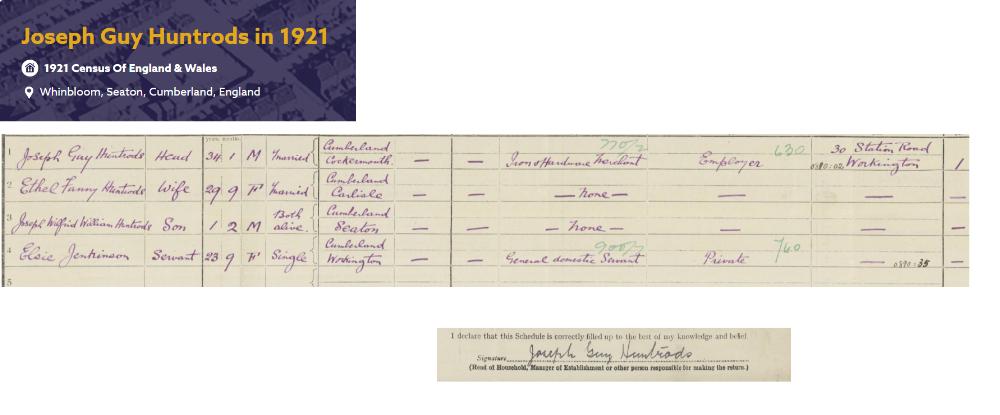 Joseph Guy Huntrods in 1921
1921 Census Of England & Wales
Whinbloom, Seaton, Cumberland, England
years. months.
1 Joseph Guy Huntrods Head 34 1 M Married Cumberland Cockermouth. — — Iron & Hardware Merchant 770/2 Employer 630 30 Station Road Workington 1
2 Ethel Fanny Huntrods Wife 29 9 F Married Cumberland Carlisle — — — None — — — —
3 Joseph Wilfrid William Huntrods Son 1 2 M Both alive. Cumberland Seaton — — — None — — — —
4 Elsie Jenkinson Servant 23 9 F Single Cumberland Workington — — General domestic Servant 900/7 Private 760 — —
5
I declare that this Schedule is correctly filled up to the best of my knowledge and belief.
Signature Joseph Guy Huntrods
(Head of Household, Manager of Establishment or other person responsible for making the return.)